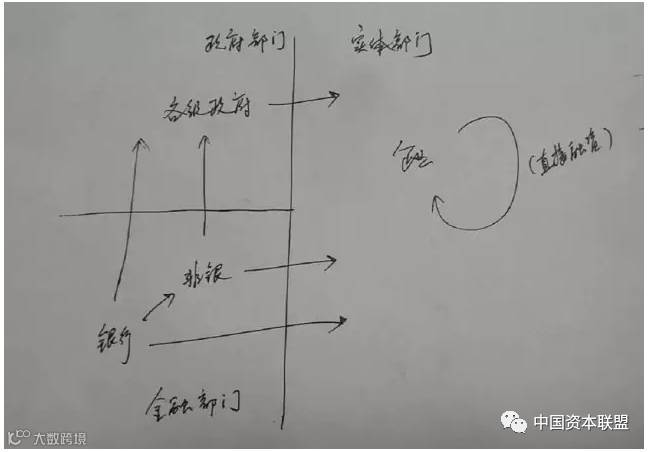 政府部门
实体部门
各级政府
企业
(直接融资)
非银
银行
金融部门
中国资本联盟
大数跨境